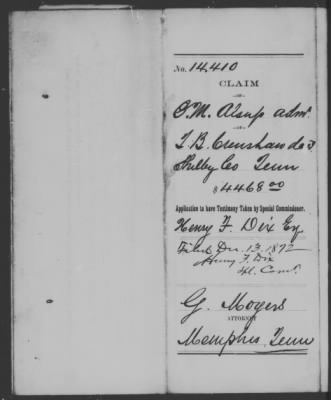 No. 14,410
CLAIM
OF
O. M. Alsup adm'r
OF
T. B. Crenshaw dec'd
Shelby Co Tenn
$4468.00
Application to have Testimony Taken by Special Commissioner.
Henry F. Dix Esq
Filed Dec. 13. 1872
Henry F. Dix
Spl. Com'r.
G. Moyers
ATTORNEY
Memphis, Tenn